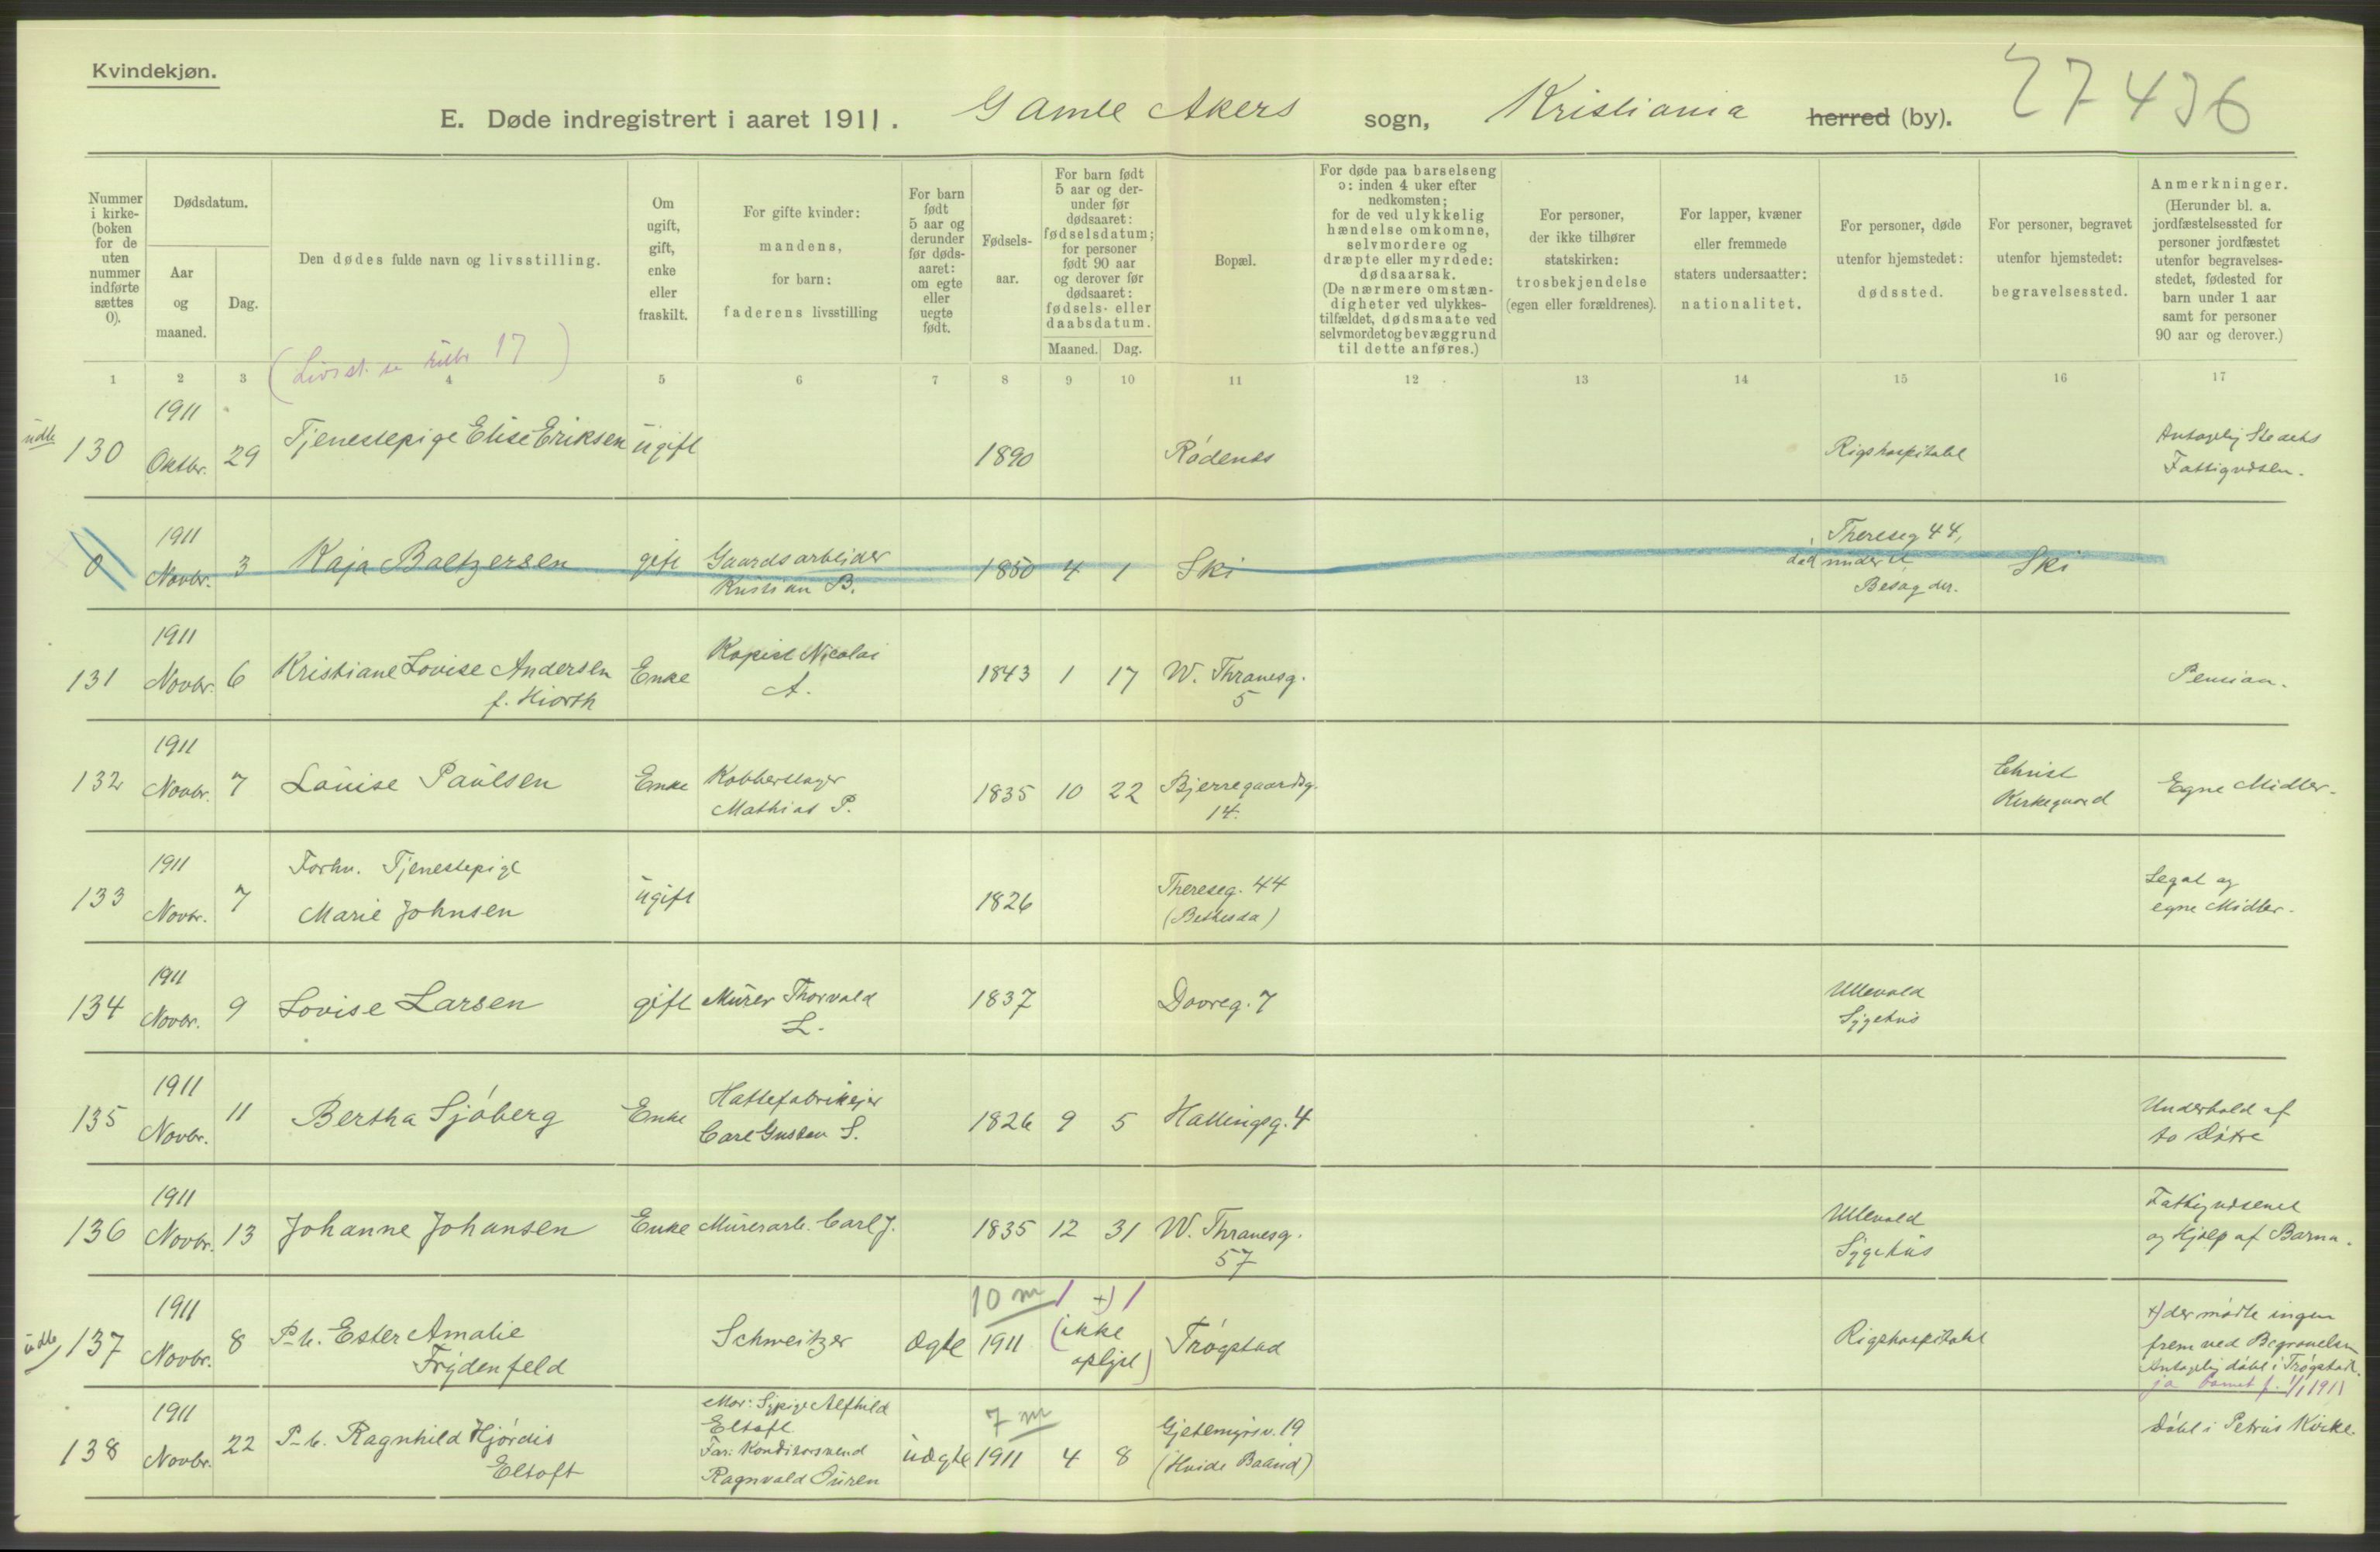 Kvindekjøn.
E. Døde indregistrert i aaret 1911. Gamle Akers sogn, Kristiania herred (by).
27436
Nummer i kirke-(boken for de uten nummer indførte sættes 0).
Dødsdatum.
Aar og maaned.
Dag.
Den dødes fulde navn og livsstilling.
Om ugift, gift, enke eller fraskilt.
For gifte kvinder: mandens, for barn: faderens livsstilling
For barn født 5 aar og derunder før døds-aaret: om egte eller uegte født.
Fødsels-aar.
For barn født 5 aar og der-under før dødsaaret: fødselsdatum; for personer født 90 aar og derover før dødsaaret: fødsels- eller daabsdatum.
Maaned. Dag.
Bopæl.
For døde paa barselseng ɔ: inden 4 uker efter nedkomsten; for de ved ulykkelig hændelse omkomne, selvmordere og dræpte eller myrdede: dødsaarsak. (De nærmere omstæn-digheter ved ulykkes-tilfældet, dødsmaate ved selvmordet og bevæggrund til dette anføres.)
For personer, der ikke tilhører statskirken: trosbekjendelse (egen eller forældrenes).
For lapper, kvæner eller fremmede staters undersaatter: nationalitet.
For personer, døde utenfor hjemstedet: dødssted.
For personer, begravet utenfor hjemstedet: begravelsessted.
Anmerkninger. (Herunder bl. a. jordfæstelsessted for personer jordfæstet utenfor begravelses-stedet, fødested for barn under 1 aar samt for personer 90 aar og derover.)
(Livsst. se rubr 17)
1 2 3 4 5 6 7 8 9 10 11 12 13 14 15 16 17
udb 130 1911 Oktbr. 29 Tjenestepige Elise Eriksen ugift 1890 Rødenes Rigshospitalet Antagelig Stedets Fattigvæsen.
0 1911 Novbr. 3 Kaja Baltzersen gift Gaardsarbeider Kristian B. 1850 4 1 Ski Thereseg 44, død under et Besøg der. Ski
131 1911 Novbr. 6 Kristiane Lovise Andersen f. Hiorth Enke Kopist Nicolai A. 1843 1 17 W. Thranesg. 5 Pension.
132 1911 Novbr. 7 Louise Paulsen Enke Kobberslager Mathias P. 1835 10 22 Bjerregaardsg. 14. Christ Kirkegaard Egne Midler.
133 1911 Novbr. 7 Forhv. Tjenestepige Marie Johnsen ugift 1826 Thereseg. 44 (Bethesda) Legat og egne Midler.
134 1911 Novbr. 9 Lovise Larsen gift Murer Thorvald L. 1837 Dovreg. 7 Ullevold Sygehus
135 1911 Novbr. 11 Bertha Sjøberg Enke Hattefabrikejer Carl Gustav S. 1826 9 5 Hallingsg. 4 Underhold af to Døtre
136 1911 Novbr. 13 Johanne Johansen Enke Murerarb. Carl J. 1835 12 31 W. Thranesg. 57 Ullevold Sygehus Fattigvæsenet og Hjælp af Barna.
udb 137 1911 Novbr. 8 P-b. Ester Amalie Frydenfeld Schweitzer ægte 10 m 1911 1 +) 1 (ikke oplyst) Trøgstad Rigshospitalet +) der mødte ingen frem ved Begravelsen Antagelig døbt i Trøgstad. ja barnet f. 1/1 1911
138 1911 Novbr. 22 P-b. Ragnhild Hjørdis Eltoft Mor: Sypige Alfhild Eltoft Far: Konditorsvend Ragnvald Duren uægte 7 m 1911 4 8 Gjetemyrsv. 19 (Hvide Baand) Døbt i Petrus Kirke.